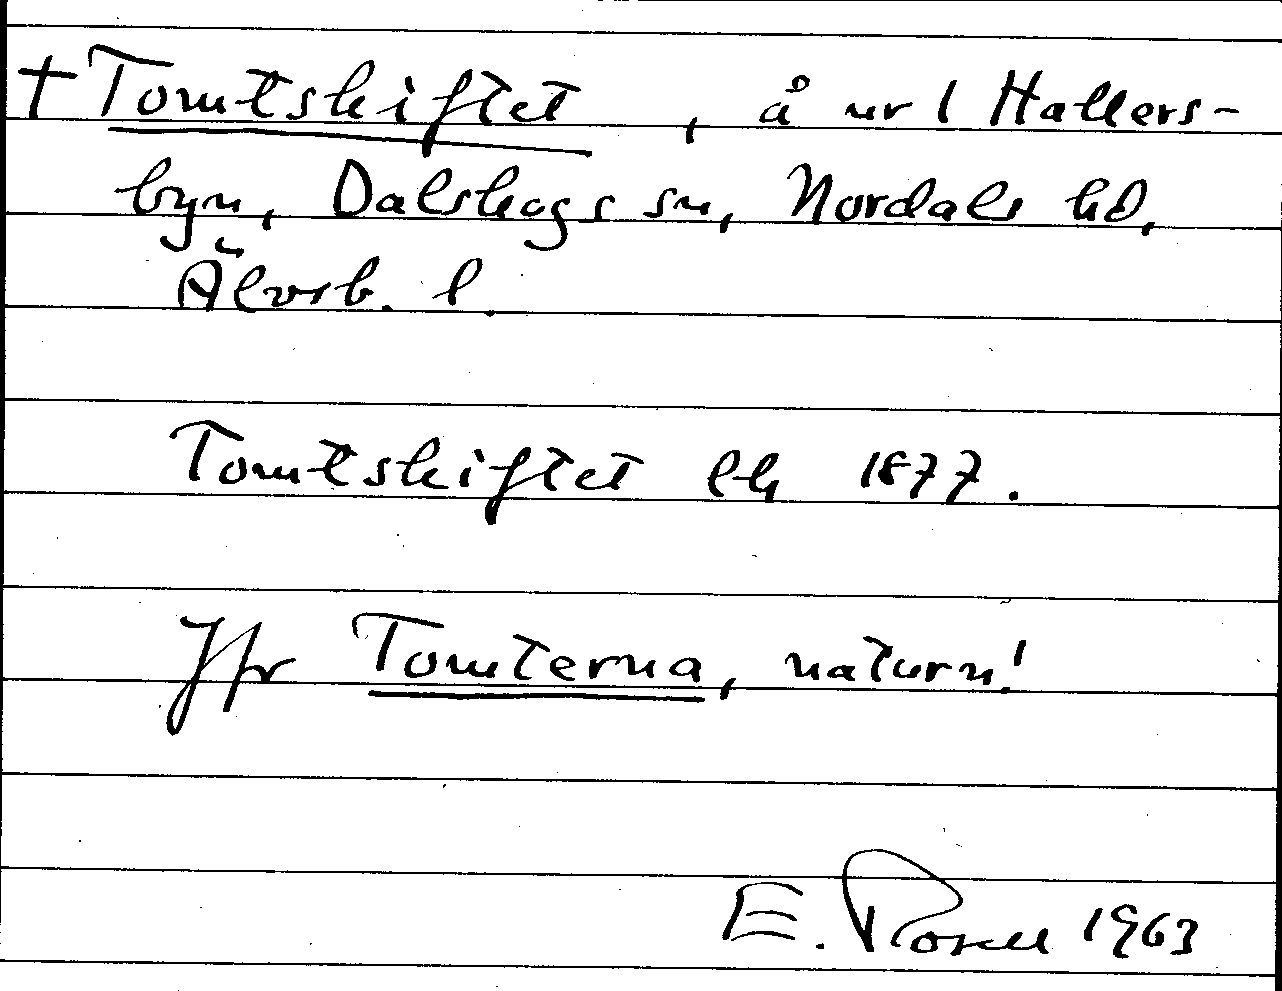 † Tomtskiftet, å nr 1 Hallers-
byn, Dalskogs sn, Nordals hd,
Älvsb. l.
Tomtskiftet lh 1877.
Jfr Tomterna, naturn!
E. Rosell 1963